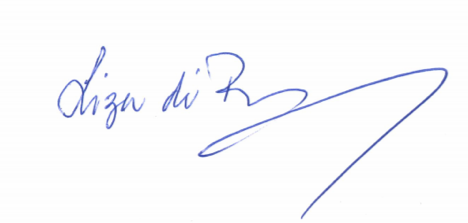 Liza di